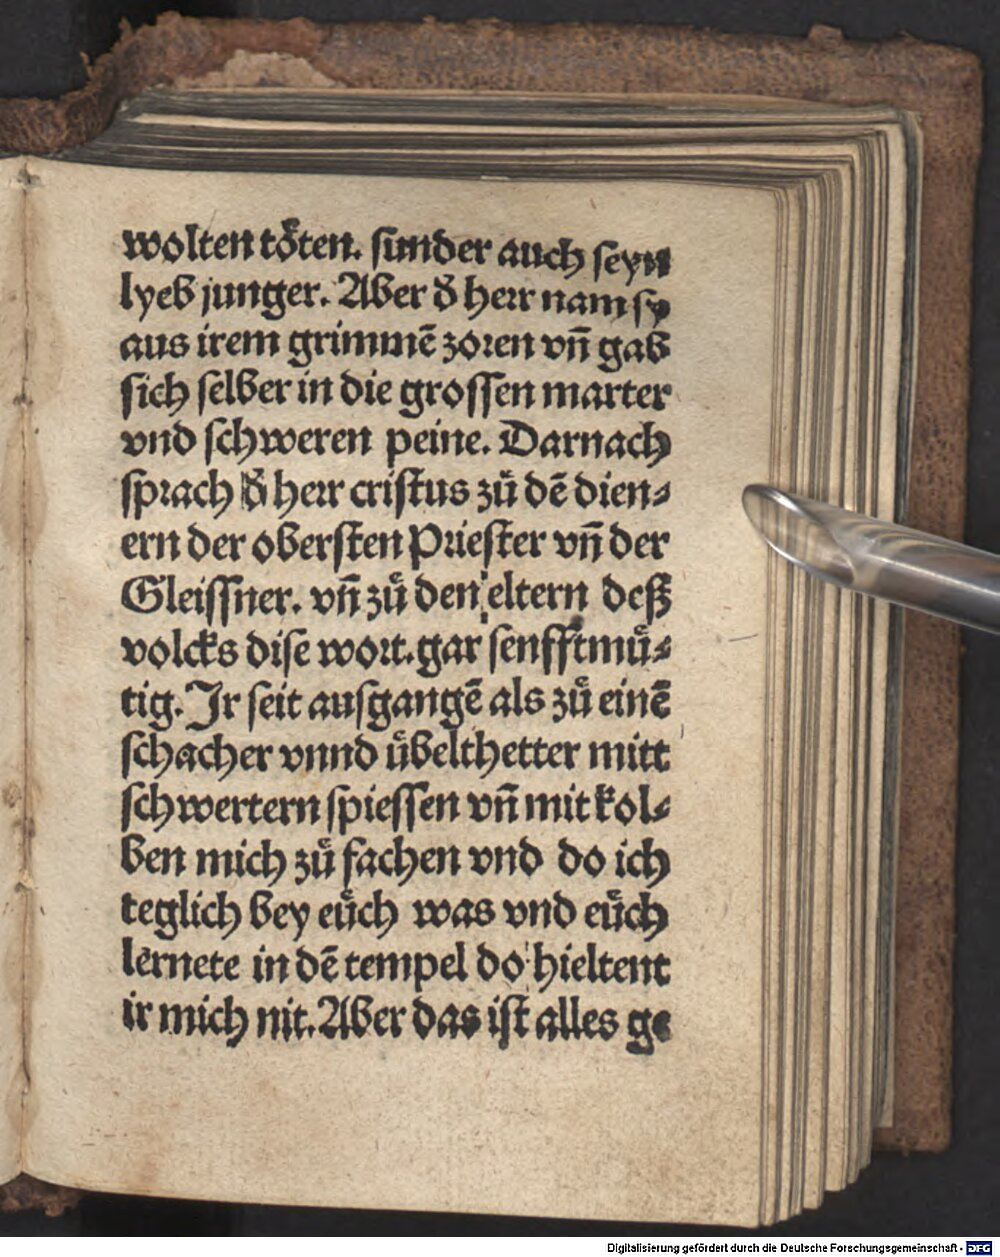 wolten toͤten. sunder auch seyn
lyeb junger. Aber d̕ herr nam sy
aus irem grimmē zoren vn̄ gab
sich selber in die grossen marter
vnd schweren peine. Darnach
sprach d̕ herr cristus zuͤ dē dien⸗
ern der obersten Priester vn̄ der
Gleissner. vn̄ zuͤ den eltern deß
volcks dise wort. gar senfftmuͤ⸗
tig. Jr seit ausgangē als zuͤ einē
schacher vnnd uͤbelthetter mitt
schwertern spiessen vn̄ mit kol⸗
ben mich zuͤ fachen vnd do ich
teglich bey euͤch was vnd euͤch
lernete in dē tempel do hieltent
ir mich nit. Aber das ist alles ge
Digitalisierung gefördert durch die Deutsche Forschungsgemeinschaft - DFG